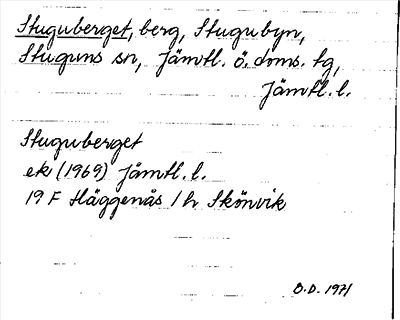 Stuguberget, berg, Stugubyn,
Stuguns sn, Jämtl. ö. doms. tg,
Jämtl. l.
Stuguberget
ek (1969) Jämtl. l.
19 F Häggenås / h Skönvik
O.D. 1971